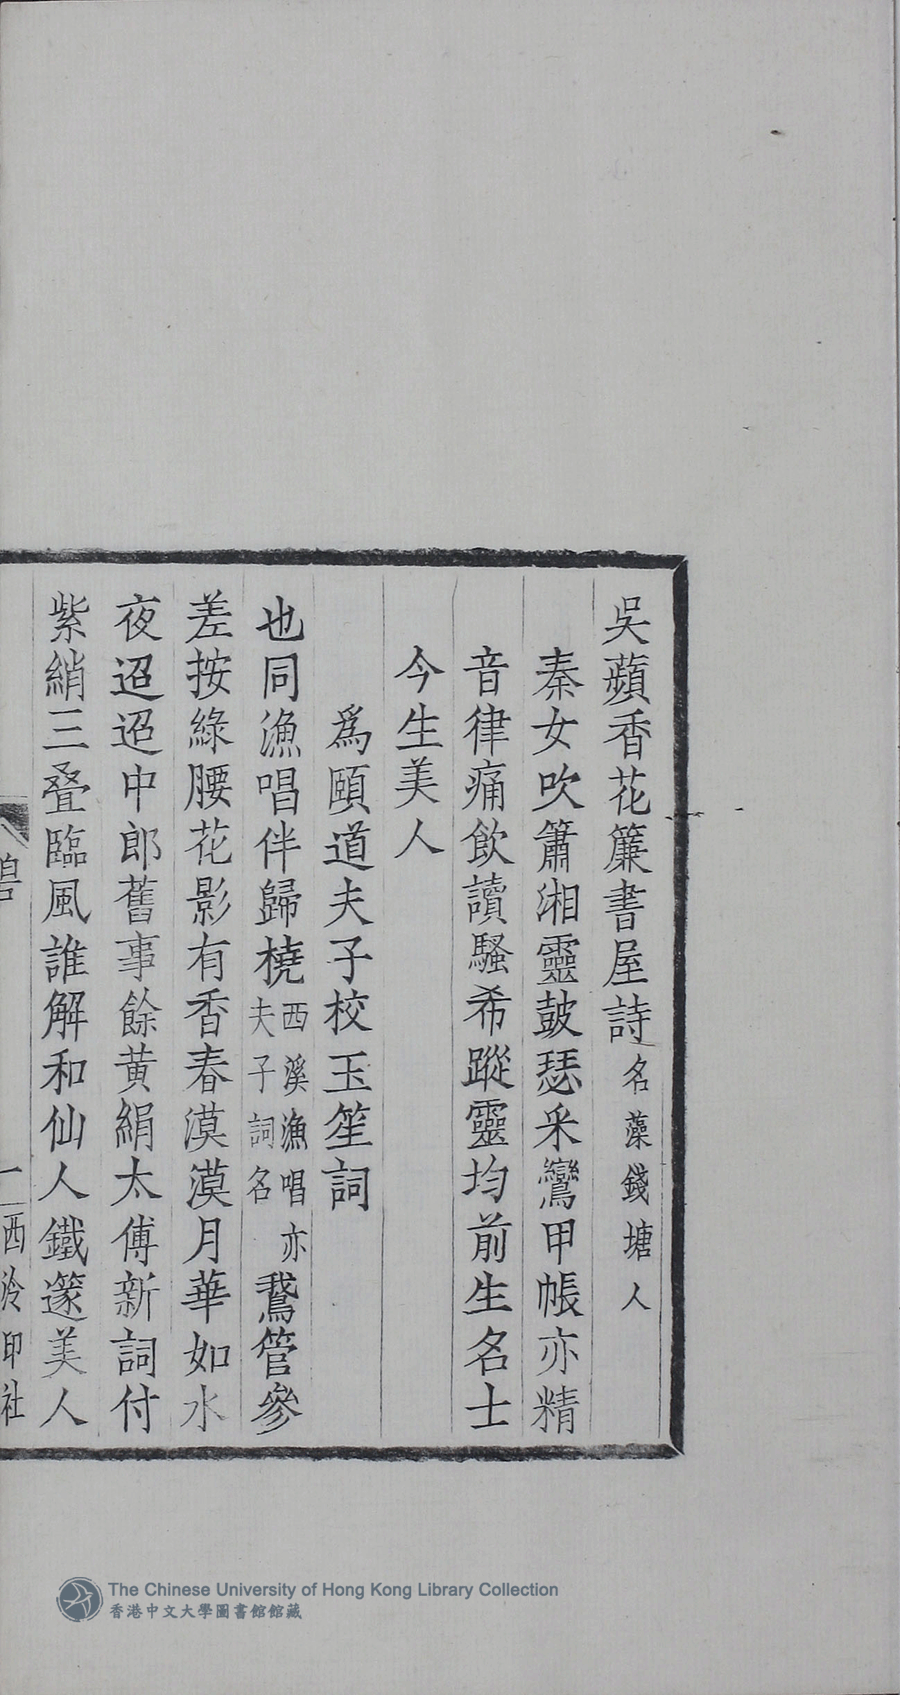 吳蘋香花簾書屋詩名藻錢塘人
秦女吹簫湘靈鼓瑟釆鸞甲帳亦精
音律痛飲讀騷希蹤靈均前生名士
今生美人
爲頤道夫子校玉笙詞
也同漁唱伴歸橈西溪漁唱亦夫子詞名鵞管參
差按綠腰花影有香春漠漠月華如水
夜迢迢中郎舊事餘黃絹太傅新詞付
紫綃三叠臨風誰解和仙人鐵篴美人
一
西泠印社
The Chinese University of Hong Kong Library Collection
香港中文大學圖書館館藏